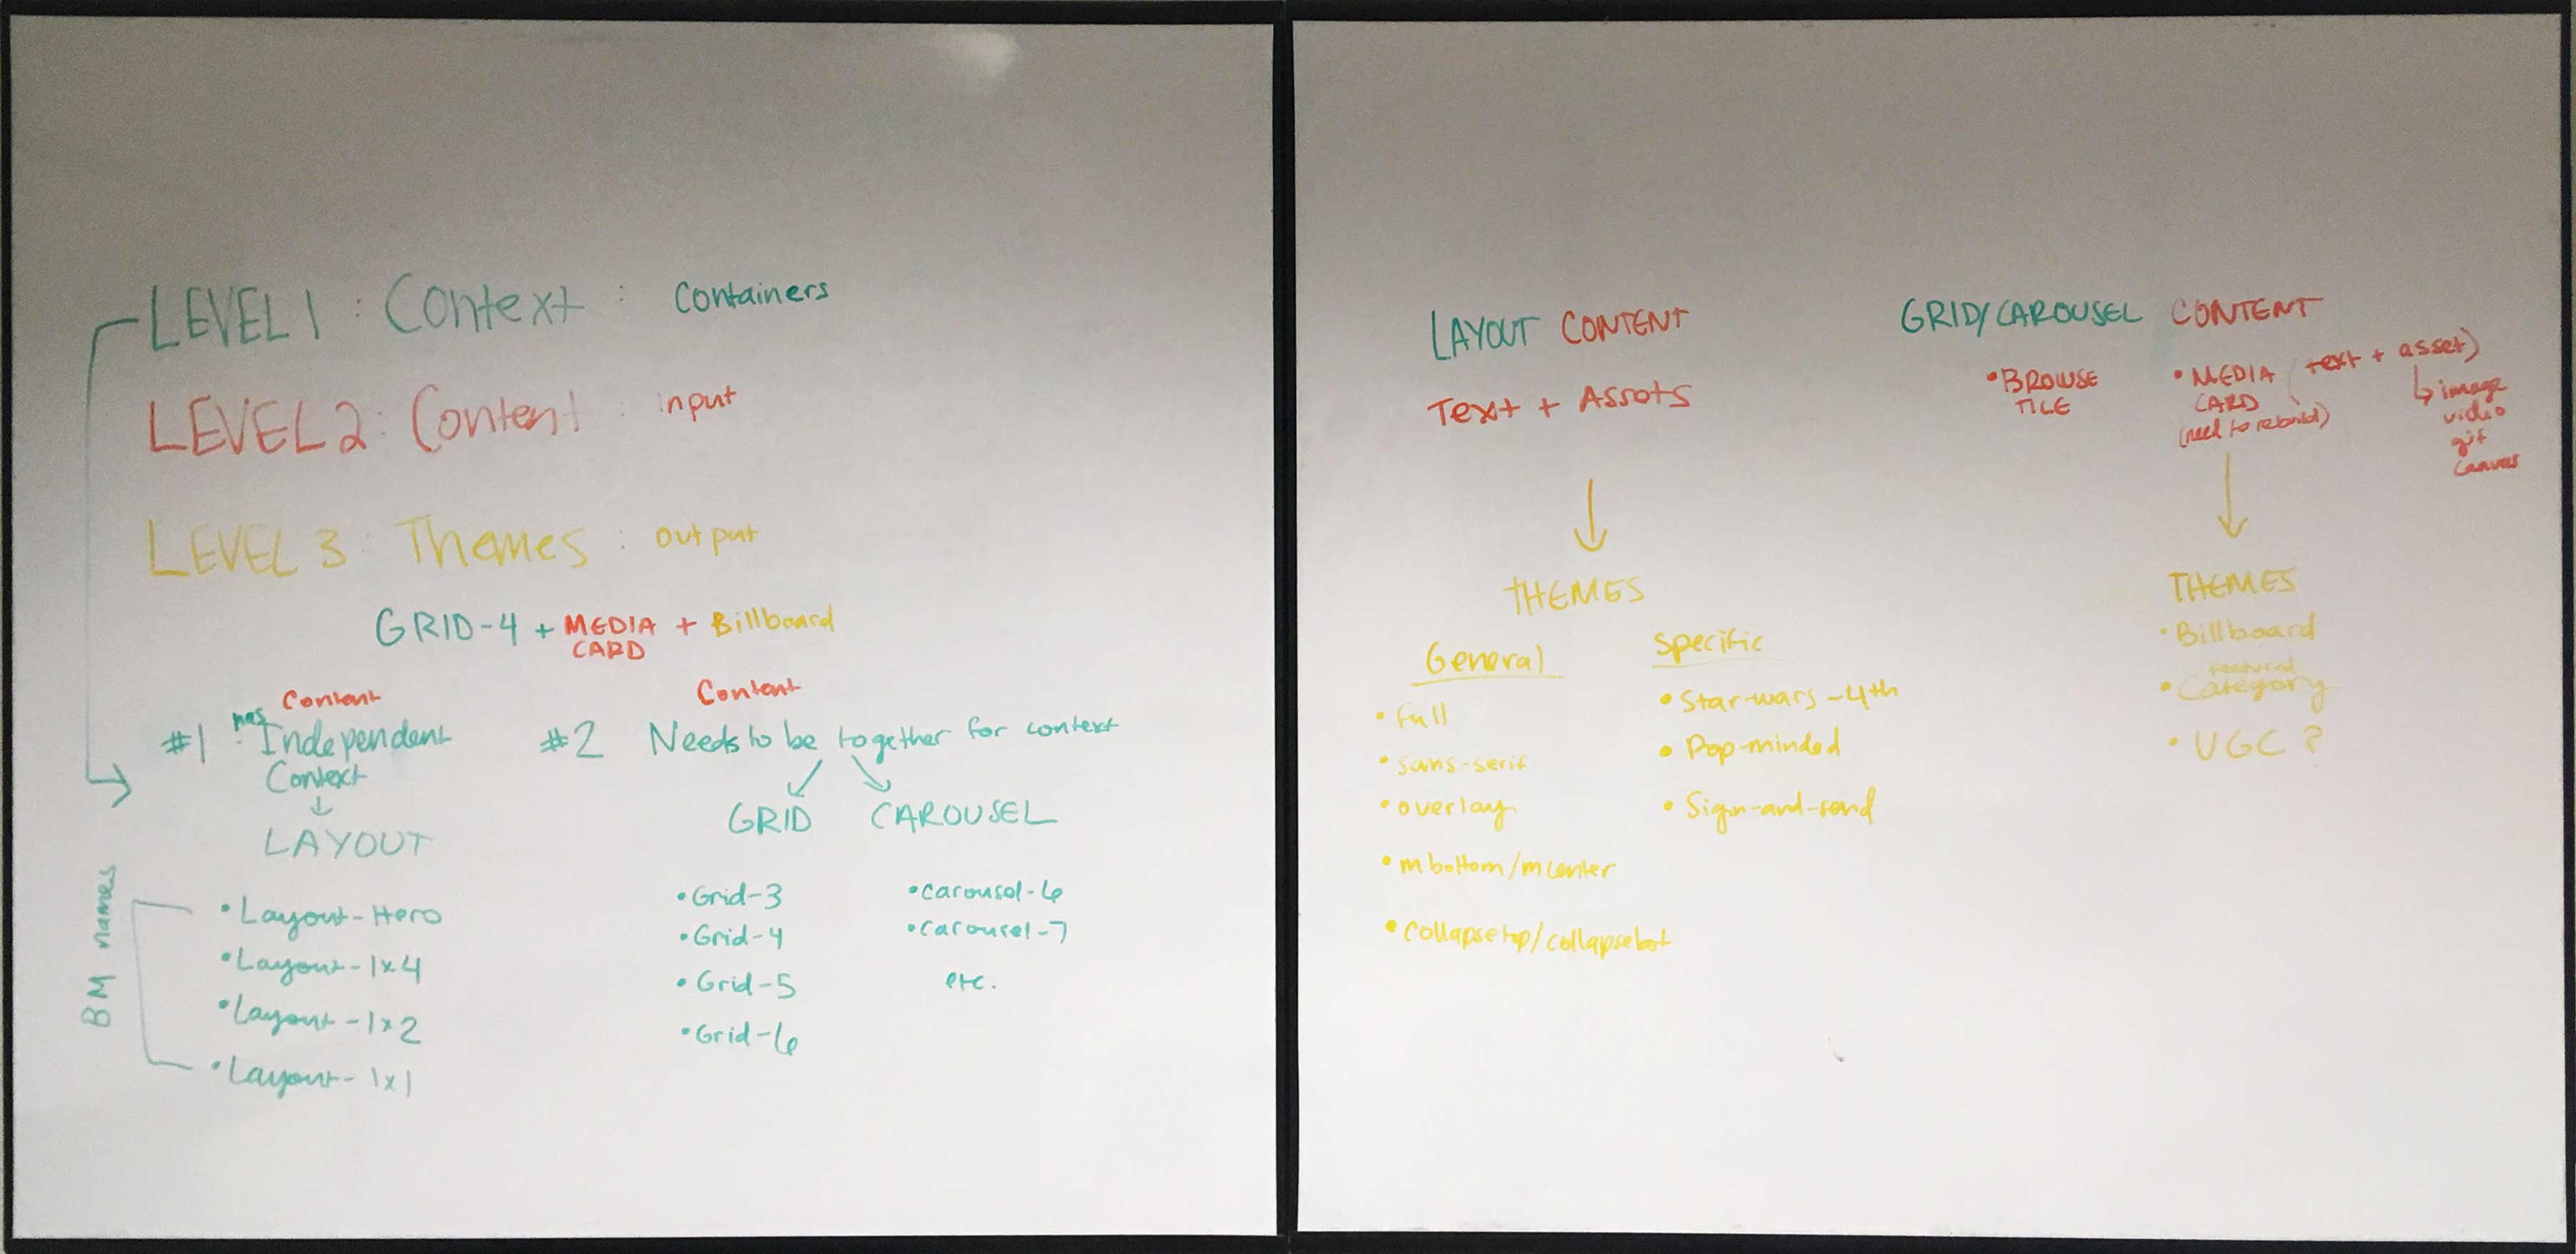 LEVEL 1 : Context : Containers
LEVEL 2 : Content : input
LEVEL 3 : Themes : output
GRID-4 + MEDIA CARD + Billboard
Content
#1 has Independent
Context
LAYOUT
• Layout-Hero
• Layout-1x4
• Layout-1x2
• Layout-1x1
BM names
Content
#2 Needs to be together for context
GRID
• Grid-3
• Grid-4
• Grid-5
• Grid-6
CAROUSEL
• carousel-6
• carousel-7
etc.
LAYOUT CONTENT
Text + Assets
THEMES
General
• full
• sans-serif
• overlay
• m bottom/m center
• collapse top/collapse bot
Specific
• Star-wars-4th
• Pop-minded
• Sign-and-send
GRID/CAROUSEL CONTENT
• BROWSE
TILE
• MEDIA (text + asset)
CARD
(need to rebuild)
image
video
gif
canvas
THEMES
• Billboard
featured
• Category
• UGC ?